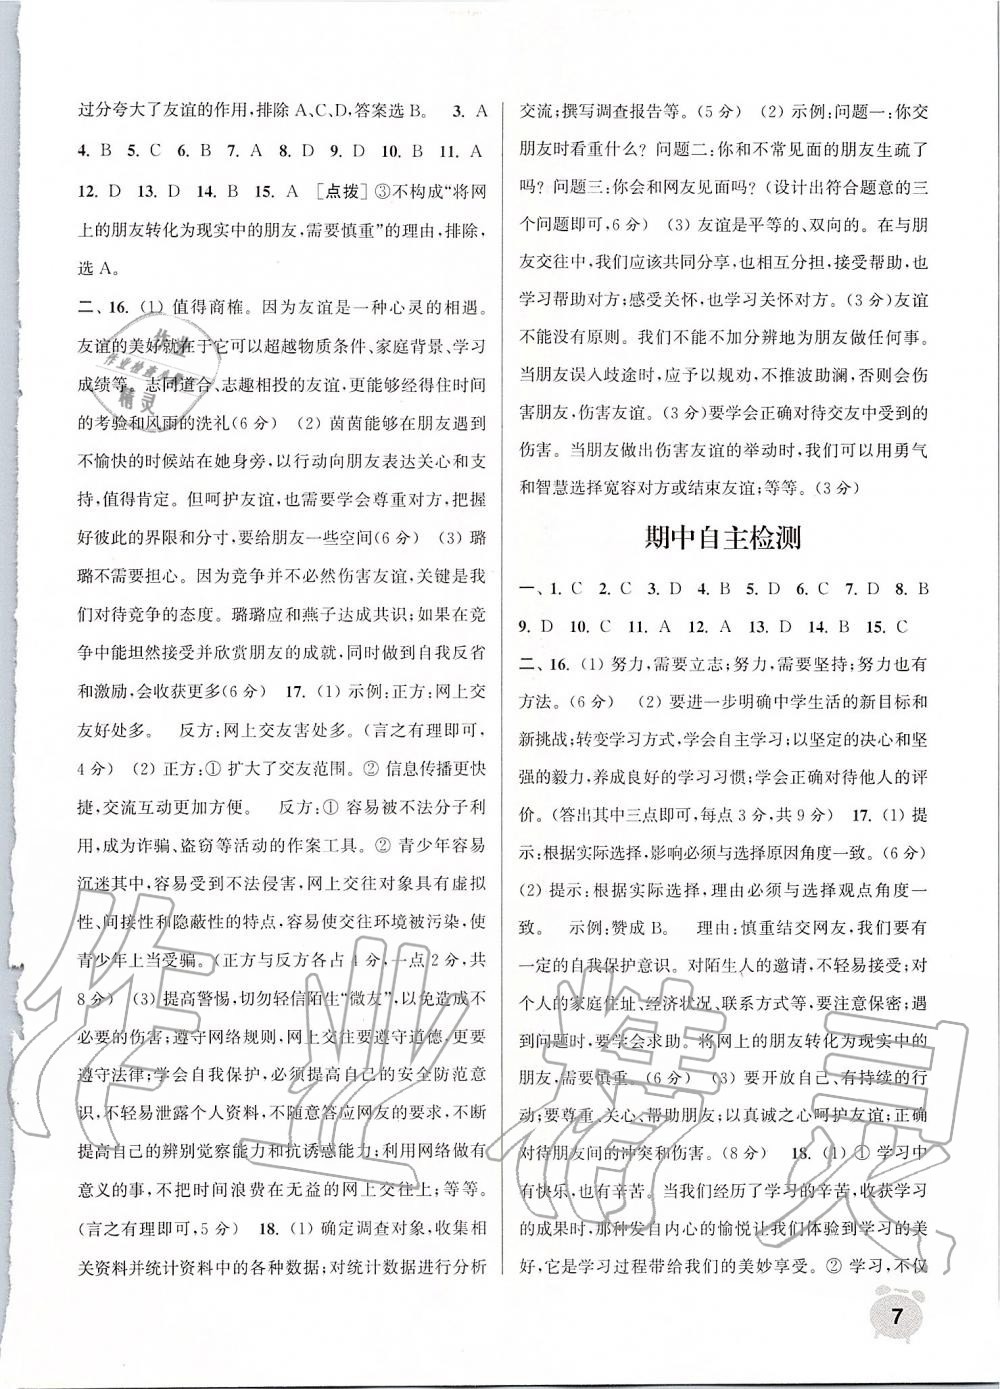 过分夸大了友谊的作用,排除 A、C、D,答案选 B。 3. A
4. B 5. C 6. B 7. A 8. D 9. D 10. B 11. A
12. D 13. D 14. B 15. A [点拨]③不构成“将网
上的朋友转化为现实中的朋友,需要慎重”的理由,排除,
选 A。
二、16. (1) 值得商榷。因为友谊是一种心灵的相遇。
友谊的美好就在于它可以超越物质条件、家庭背景、学习
成绩等。志同道合、志趣相投的友谊,更能够经得住时间
的考验和风雨的洗礼(6 分) (2) 茵茵能够在朋友遇到
不愉快的时候站在她身旁,以行动向朋友表达关心和支
持,值得肯定。但呵护友谊,需要学会尊重对方,把握
好彼此的界限和分寸,要给朋友一些空间(6 分) (3) 璐
璐不需要担心。因为竞争并不必然伤害友谊,关键是我
们对待竞争的态度。璐璐应和燕子达成共识:如果在竞
争中能坦然接受并欣赏朋友的成就,同时做到自我反省
和激励,会收获更多(6 分) 17. (1) 示例:正方:网上交
友好处多。 反方:网上交友害处多。(言之有理即可,
4 分) (2) 正方:① 扩大了交友范围。② 信息传播更快
捷,交流互动更加方便。 反方:① 容易被不法分子利
用,成为诈骗、盗窃等活动的作案工具。② 青少年容易
沉迷其中,容易受到不法侵害,网上交往对象具有虚拟
性、间接性和隐蔽性的特点,容易使交往环境被污染,使
青少年上当受骗。(正方与反方各占 4 分,一点 2 分,共
8 分) (3) 提高警惕,切勿轻信陌生“微友”,以免造成不
必要的伤害;遵守网络规则,网上交往要遵守道德,更要
遵守法律;学会自我保护,必须提高自己的安全防范意
识,不轻易泄露个人资料,不随意答应网友的要求,不断
提高自己的辨别觉察能力和抗诱惑能力;利用网络做有
意义的事,不把时间浪费在无益的网上交往上;等等。
(言之有理即可,5 分) 18. (1) 确定调查对象,收集相
关资料并统计资料中的各种数据;对统计数据进行分析
交流;撰写调查报告等。(5 分) (2) 示例:问题一:你交
朋友时看重什么? 问题二:你和不常见面的朋友生疏了
吗? 问题三:你会和网友见面吗? (设计出符合题意的三
个问题即可,6 分) (3) 友谊是平等的、双向的。在与朋
友交往中,我们应该共同分享,也相互分担,接受帮助,也
学习帮助对方;感受关怀,也学习关怀对方。(3 分)友谊
不能没有原则。我们不能不加分辨地为朋友做任何事。
当朋友误入歧途时,应予以规劝,不推波助澜,否则会伤
害朋友,伤害友谊。(3 分)要学会正确对待交友中受到的
伤害。当朋友做出伤害友谊的举动时,我们可以用勇气
和智慧选择宽容对方或结束友谊;等等。(3 分)
期中自主检测
一、1. C 2. C 3. D 4. B 5. D 6. C 7. D 8. B
9. D 10. C 11. A 12. A 13. D 14. B 15. C
二、16. (1) 努力,需要立志;努力,需要坚持;努力也有
方法。(6 分) (2) 要进一步明确中学生活的新目标和
新挑战;转变学习方式,学会自主学习;以坚定的决心和坚
强的毅力,养成良好的学习习惯;学会正确对待他人的评
价。(答出其中三点即可,每点 3 分,共 9 分) 17. (1) 提
示:根据实际选择,影响必须与选择原因角度一致。(6 分)
(2) 提示:根据实际选择,理由必须与选择观点角度一
致。 示例:赞成 B。 理由:慎重结交网友,我们要有
一定的自我保护意识。对陌生人的邀请,不轻易接受;对
个人的家庭住址、经济状况、联系方式等,要注意保密;遇
到问题时,要学会求助。将网上的朋友转化为现实中的
朋友,需要慎重。(6 分) (3) 要开放自己、有持续的行
动;要尊重、关心、帮助朋友;以真诚之心呵护友谊;正确
对待朋友间的冲突和伤害。(8 分) 18. (1) ① 学习中
有快乐,也有辛苦。当我们经历了学习的辛苦,收获学习
的成果时,那种发自内心的愉悦让我们体验到学习的美
好,它是学习过程带给我们的美妙享受。② 学习,不仅
7
作业
作业检查小帮手
精灵
作业精灵